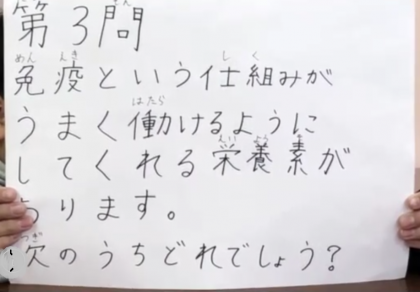 第3問
免疫という仕組みが
うまく働けるように
してくれる栄養素が
あります。
次のうちどれでしょう?